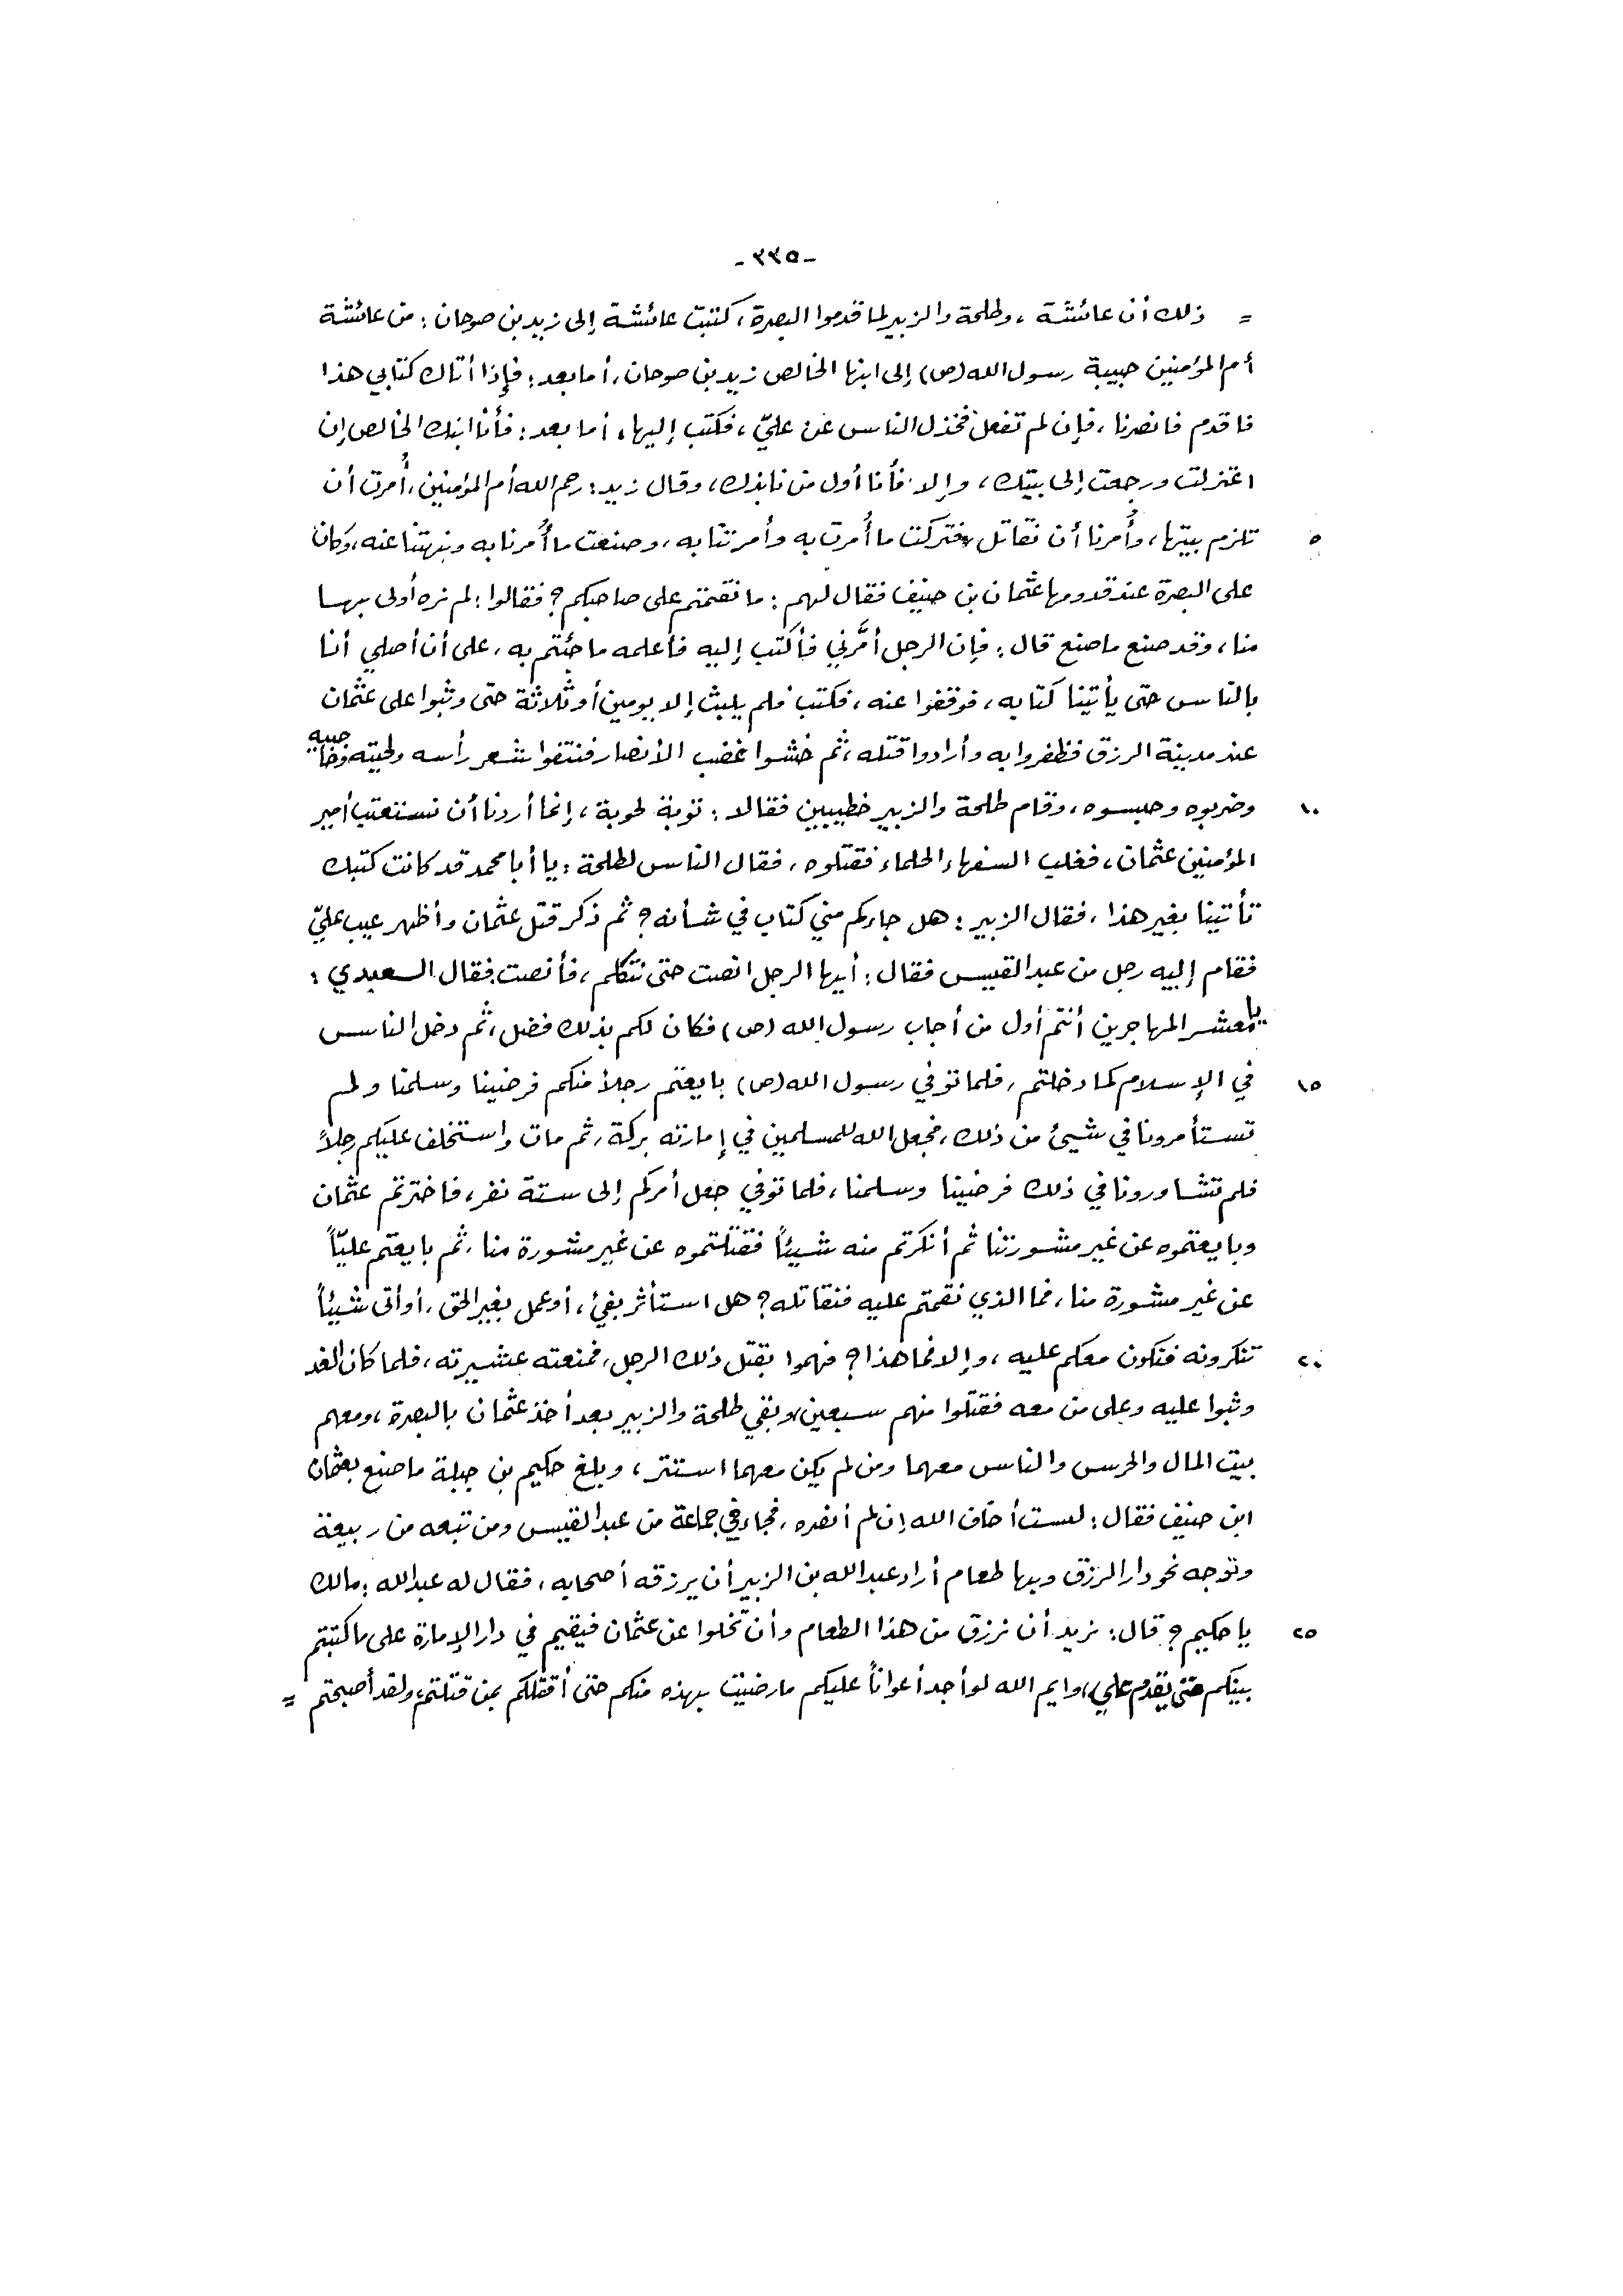 -٣٣٥-
= ذلك أن عائشة ، وطلحة والزبير لما قدموا البصرة ، كتبت عائشة إلى زيد بن صوحان : من عائشة
أم المؤمنين حبيبة رسول الله (ص) إلى ابنها الخالص زيد بن صوحان ، أما بعد : فإذا أتاك كتابي هذا
فاقدم فانصرنا ، فإن لم تفعل فخذل الناس عن عليّ ، فكتب إليها ، أما بعد : فأنا ابنك الخالص إن
اعتزلت ورجعت إلى بيتك ، وإلا فأنا أول من نابذك ، وقال زيد : رحم الله أم المؤمنين ، أُمرت أن
٥ تلزم بيتها ، وأُمرنا أن نقاتل ، فتركت ما أُمرت به وأمرتنا به ، وصنعت ما أُمرنا به ونهتنا عنه ، وكان
على البصرة عند قدومها عثمان بن حنيف فقال لهم : ما نقمتم على صاحبكم ؟ فقالوا : لم نره أولى بها
منا ، وقد صنع ما صنع قال : فإن الرجل أمَّرني فأكتب إليه فأعلمه ما جئتم به ، على أن أصلي أنا
بالناس حتى يأتينا كتابه ، فوقفوا عنه ، فكتب فلم يلبث إلا يومين أو ثلاثة حتى وثبوا على عثمان
عند مدينة الرزق فظفروا به وأرادوا قتله ، ثم خشوا غضب الأنصار فنتفوا شعر رأسه ولحيته وحاجبيه
١٠ وضربوه وحبسوه ، وقام طلحة والزبير خطيبين فقالا : توبة لحوبة ، إنما أردنا أن نستعتب أمير
المؤمنين عثمان ، فغلب السفهاء الحلماء فقتلوه ، فقال الناس لطلحة : يا أبا محمد قد كانت كتبك
تأتينا بغير هذا ، فقال الزبير : هل جاءكم مني كتاب في شأنه ؟ ثم ذكر قتل عثمان وأظهر عيب عليّ
فقام إليه رجل من عبد القيس فقال : أيها الرجل انصت حتى نتكلم ، فأنصت فقال السعبدي :
يا معشر المهاجرين أنتم أول من أجاب رسول الله (ص) فكان لكم بذلك فضل ، ثم دخل الناس
١٥ في الإسلام كما دخلتم ، فلما توفي رسول الله (ص) بايعتم رجلاً منكم فرضينا وسلمنا ولم
تستأمرونا في شيئ من ذلك ، فجعل الله للمسلمين في إمارته بركة ، ثم مات واستخلف عليكم رجلاً
فلم تتشاورونا في ذلك فرضينا وسلمنا ، فلما توفي جعل أمركم إلى ستة نفر ، فاخترتم عثمان
وبايعتموه عن غير مشورتنا ثم أنكرتم منه شيئاً فقتلتموه عن غير مشورة منا ، ثم بايعتم عليّاً
عن غير مشورة منا ، فما الذي نقمتم عليه فنقاتله ؟ هل استأثر بفيئ ، أو عمل بغير الحق ، أو أتى شيئاً
٢٠ تنكرونه فنكون معكم عليه ، وإلا فما هذا ؟ فهموا بقتل ذلك الرجل ، فمنعته عشيرته ، فلما كان الغد
وثبوا عليه وعلى من معه فقتلوا منهم سبعين ، وبقي طلحة والزبير بعد أخذ عثمان بالبصرة ، ومعهم
بيت المال والحرس والناس معهما ومن لم يكن معهما استتر ، وبلغ حكيم بن جبلة ما صنع بعثمان
ابن حنيف فقال : لست أخاف الله إن لم أنصره ، فجاء في جماعة من عبد القيس ومن تبعه من ربيعة
وتوجه نحو دار الرزق وبها طعام أراد عبد الله بن الزبير أن يرزقه أصحابه ، فقال له عبد الله : مالك
٢٥ يا حكيم ؟ قال : نريد أن نرزق من هذا الطعام وأن تخلوا عن عثمان فيقيم في دار الإمارة على ما كتبتم
بينكم حتى يقدم علي ، وايم الله لو أجد أعواناً عليكم ما رضيت بهذه منكم حتى أقتلكم بمن قتلتم ، ولقد أصبحتم =